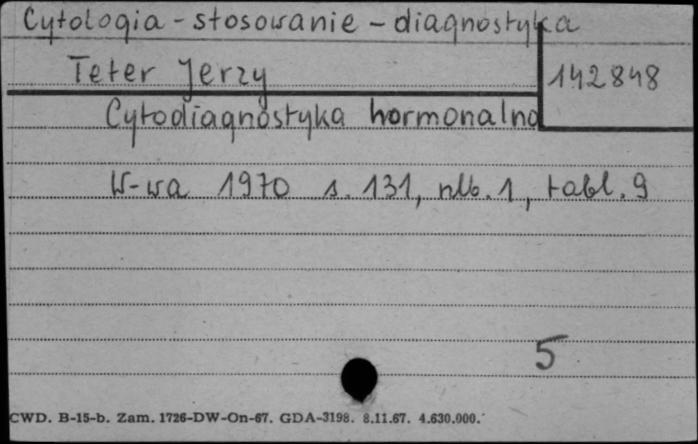 Cytologia - stosowanie - diagnostyka
Teter Jerzy
142848
Cytodiagnostyka hormonalna
W-wa 1970 s. 131, nlb. 1, tabl. 9
5
CWD. B-15-b. Zam. 1726-DW-On-67. GDA-3198. 8.11.67. 4.630.000.